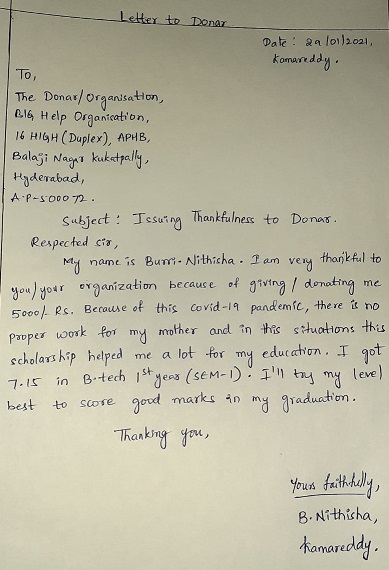 Letter to Donar
Date: 29/01/2021,
Kamareddy.
To,
The Donar/Organisation,
BIG Help Organication,
16 HIGH (Duplex), APHB,
Balaji Nagar kukatpally,
Hyderabad,
A.P-500072.
Subject: Issuing Thankfulness to Donar.
Respected sir,
My name is Burri-Nithisha. I am very thankful to
you/your organization because of giving/donating me
5000/- Rs. Because of this covid-19 pandemic, there is no
proper work for my mother and in this situations this
scholarship helped me a lot for my education. I got
7.15 in B-tech 1st year (SEM-1). I'll try my level
best to score good marks in my graduation.
Thanking you,
Yours faithfully,
B.Nithisha,
Kamareddy.